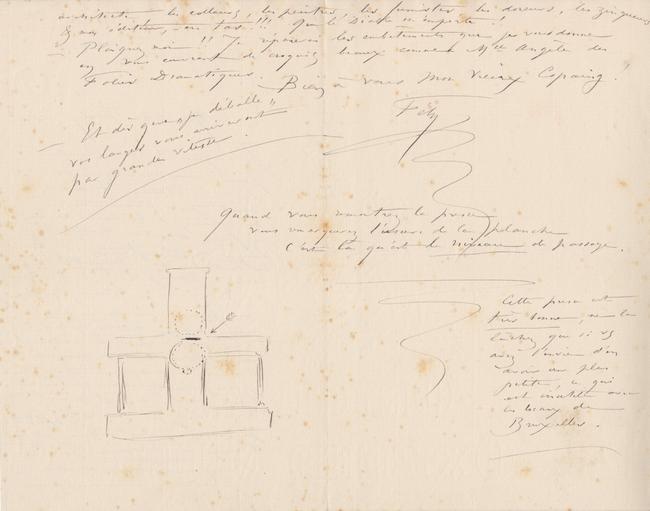 architecte, les colleurs, les peintres, les fumistes, les doreurs, les zingueurs
& mon éditeur, en tas!!! que le Diable m'emporte!!
Plaignez moi!! Je réparerai les embêtements que je vous donne
en vous envoyant de croquis beaux comme Melle Angèle des
Folies Dramatiques.
Bien à vous Mon Vieux Copaing.
Fély
Et dès que je déballe,,
vos langes vous arriveront
par grande vitesse.
Quand vous monterez la presse
vous marquerez l'usure de la planche
C'est là qu'est le niveau de passage.
Cette presse est
très bonne, ne la
lâchez que si vs
avez l'envie d'en
avoir une plus
petite, ce qui
est inutile avec
de
Bruxelles.